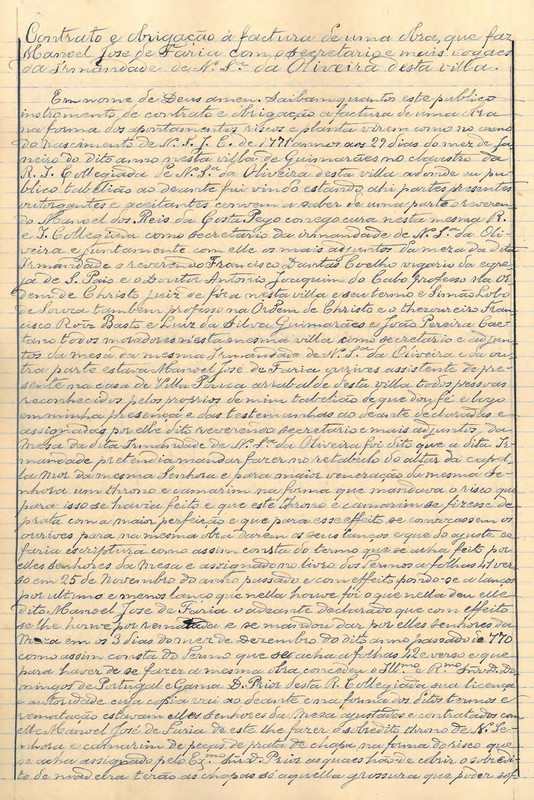 Contrato e obrigação á factura de uma obra, que faz
Manoel José de Faria com o secretario e mais vogaes
da Irmandade de N.ª Sr.ª da Oliveira desta villa.
Em nome de Deus amen. Saibam quantos este publico
instromento de contrato e obrigação á factura de uma obra
na forma dos apontamentos riscos e planta virem como no anno
do nascimento de N. S. J. C. de 1771 annos aos 29 dias do mez de Ja-
neiro do dito anno nesta villa de Guimarães no claustro da
R. I. Collegiada de N. Sª da Oliveira desta villa adonde eu pu-
blico tabelião ao deante fui vindo estando ahi partes presentes
outorgantes e aceitantes convem a saber de uma parte o reveren-
do Manoel dos Reis da Costa Pego conego cura nesta mesma R.
e I. Collegiada como secretario da irmandade de N.ª Sª da Oli-
veira e juntamente com elle os mais adjuntos da meza da dita
Irmandade o reverendo Francisco Dantas Coelho vigario da egre-
ja de S. Paio e o Doutor Antonio Joaquim do Cabo Professo na Or-
dem de Christo juiz de fóra nesta villa e seu termo e Simão Lobo
de Souza tambem professo na Ordem de Christo e o thezoureiro Fran-
cisco Roiz Basto e Luiz da Silva Guimarães e João Pereira Cae-
tano todos moradores nesta mesma villa como secretario e adjun-
tos da meza da mesma Irmandade de N.ª Sª da Oliveira e da ou-
tra parte estava Manoel José de Faria ourives assistente de pre-
sente na casa de Villa Pouca arrabalde desta villa todos pessoas
reconhecidos pelos proprios de mim tabelião de que dou fé e logo
em minha presença e das testemunhas ao deante declaradas e
assignadas por elle dito reverendo secretario e mais adjuntos da
Mesa da dita Irmandade de N.ª Sª da Oliveira foi dito que a dita Ir-
mandade pretendia mandar fazer no retabulo do altar da capel-
la mór da mesma Senhora e para maior veneração da mesma Se-
nhora um throno e camarim na forma que mandava o risco que
para isso se havia feito e que este throno e camarim se fizesse de
prata com a maior perfeição e que para esse effeito se convocassem os
ourives para na mesma obra darem os seus lanços e que do ajuste se
faria escriptura como assim consta do termo que se acha feito por
elles senhores da Mesa e assignado no livro dos Termos a folhas 41 ver-
so em 25 de Novembro do anno passado e com effeito pondo-se a lanços
por ultimo e menos lanço que nella houve foi o que nella deu elle
dito Manoel José de Faria o adeante declarado que com effeito
se lhe houve por rematada e se mandou dar por elles Senhores da
Meza em os 3 dias do mez de Dezembro do dito anno passado de 1770
como assim consta do Termo que se acha a folhas 42 e verso e que
para haver de se fazer a mesma obra concedeu o Illmo e Rmo Snr. D. Do-
mingos de Portugal e Gama D. Prior desta R. Collegiada sua licença
e autoridade cuja copia vai ao deante e na forma dos ditos termos e
rematação estavam elles Senhores da Mesa ajustados e contratados com
elle Manoel José de Faria de este lhe fazer o sobredito throno de N. Se-
nhora e camarim de peças de prata de chapa na forma do risco que
se acha assignado pelo Exmo Snr. D. Prior as quaes hão de cobrir o sobredi-
to de madeira terão as chapas só aquella grossura que poder sof-